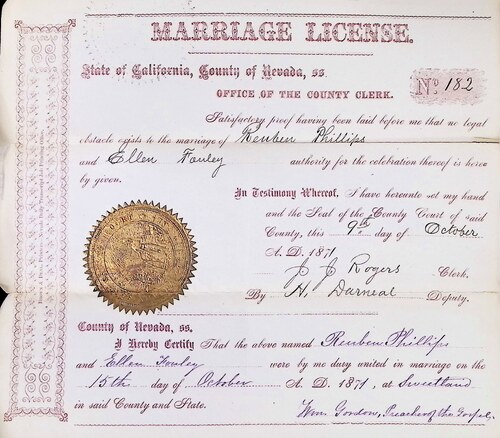 MARRIAGE LICENSE.
State of California, County of Nevada, ss.
No 182
OFFICE OF THE COUNTY CLERK.
Satisfactory proof having been laid before me that no legal
obstacle exists to the marriage of Reuben Phillips
and Ellen Fouley authority for the celebration thereof is here-
by given.
In Testimony Whereof, I have hereunto set my hand
and the Seal of the County Court of said
County, this 9th day of October
A. D. 1871
J J Rogers Clerk.
By H. Darneal Deputy.
County of Nevada, ss.
I Hereby Certify That the above named Reuben Phillips
and Ellen Fouley were by me duly united in marriage on the
15th day of October A. D. 1871, at Sweetland
in said County and State.
Wm. Gordow, Preacher of the Gospel.